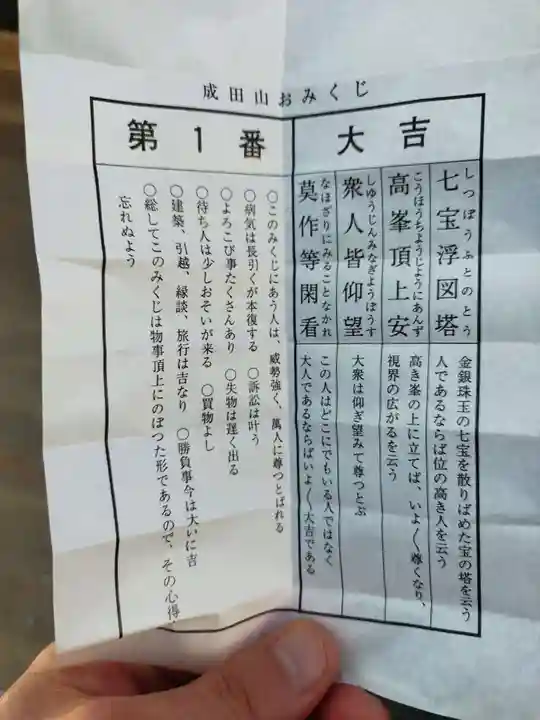 成田山おみくじ
大吉
第1番
七宝浮図塔
しつぽうふとのとう
金銀珠玉の七宝を散りばめた宝の塔を云う
人であるならば位の高き人を云う
高峯頂上安
こうほうちようじようにあんず
高き峯の上に立てば、いよ〳〵尊くなり、
視界の広がるを云う
衆人皆仰望
しゆうじんみなぎようぼうす
大衆は仰ぎ望みて尊つとぶ
莫作等閑看
なほざりにみることなかれ
この人はどこにでもいる人ではなく
大人であるならばいよ〳〵大吉である
〇このみくじにあう人は、威勢強く、萬人に尊つとばれる
〇病気は長引くが本復する 〇訴訟は叶う
〇よろこび事たくさんあり 〇失物は遅く出る
〇待ち人は少しおそいが来る 〇買物よし
〇建築、引越、縁談、旅行は吉なり 〇勝負事今は大いに吉
〇総してこのみくじは物事頂上にのぼつた形であるので、その心得
忘れぬよう